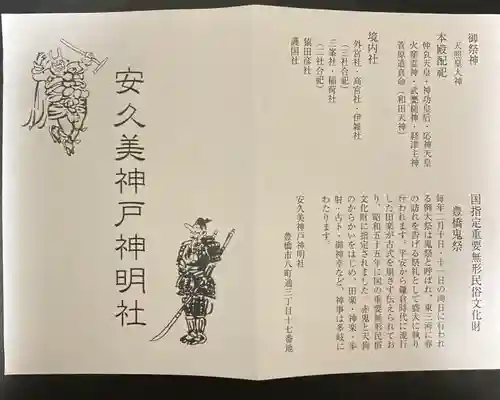 御祭神
天照皇大神
本殿配祀
仲哀天皇・神功皇后・応神天皇
火産霊神・武甕槌神・経津主神
菅原道真命(和田天神)
境内社
外宮社・高宮社・伊雑社
(三社合祀)
三峯社・稲荷社
(二社合祀)
猿田彦社
護国社
国指定重要無形民俗文化財
豊橋鬼祭
毎年二月十日・十一日の両日に行われ
る例大祭は鬼祭と呼ばれ、東三河に春
の訪れを告げる祭礼として盛大に執り
行われます。平安から鎌倉時代に流行
した田楽が古式を崩さず伝えられてお
り、昭和五十五年に国の重要無形民俗
文化財に指定されました。赤鬼と天狗
のからかいをはじめ、田楽・神楽・歩
射・占卜・御神幸など、神事は多岐に
わたります。
安久美神戸神明社
豊橋市八町通三丁目十七番地
安久美神戸神明社